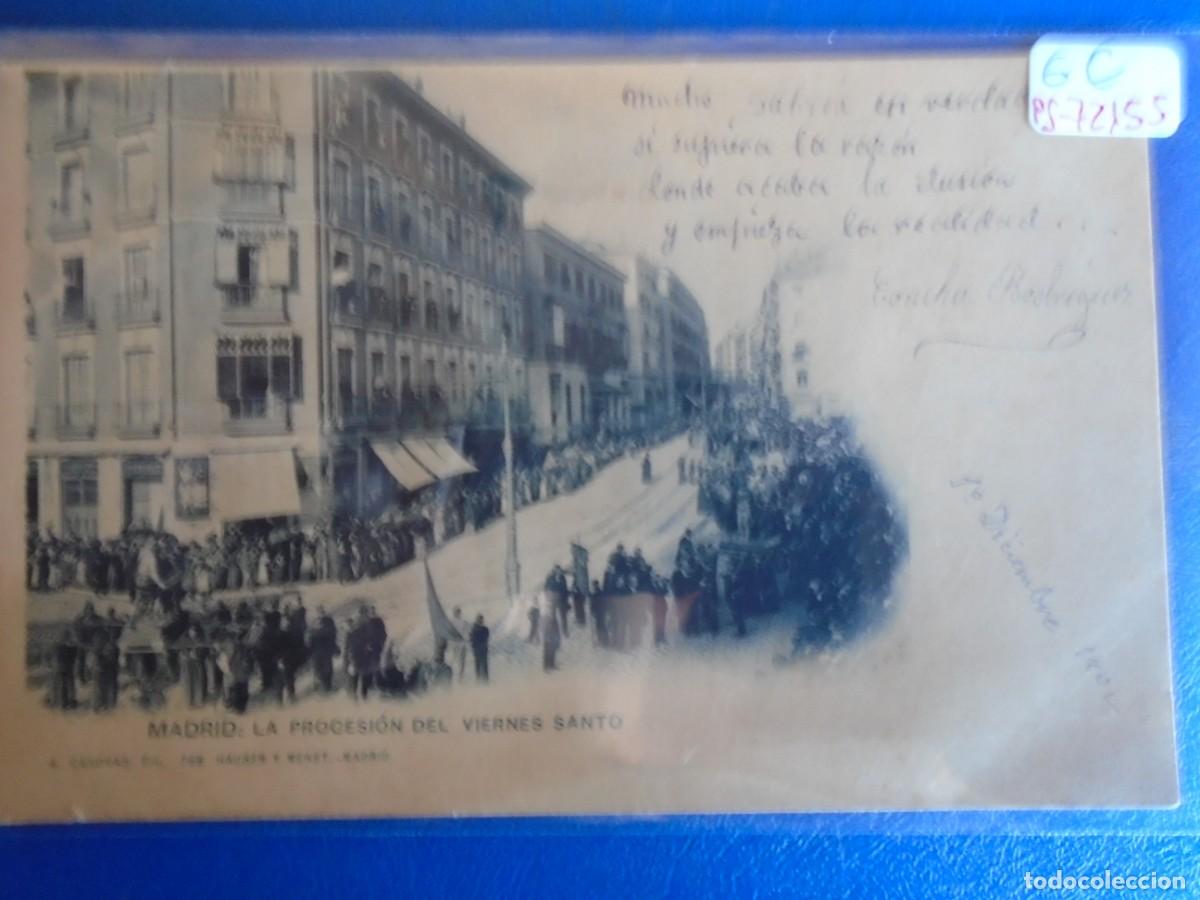 6 C
PS-72155
Mucho sabria en verdad
si supiera la razón
donde acaba la ilusión
y empieza la realidad...
Concha Rodriguez
Diciembre
MADRID: LA PROCESIÓN DEL VIERNES SANTO
HAUSER Y MENET.-MADRID
todocoleccion